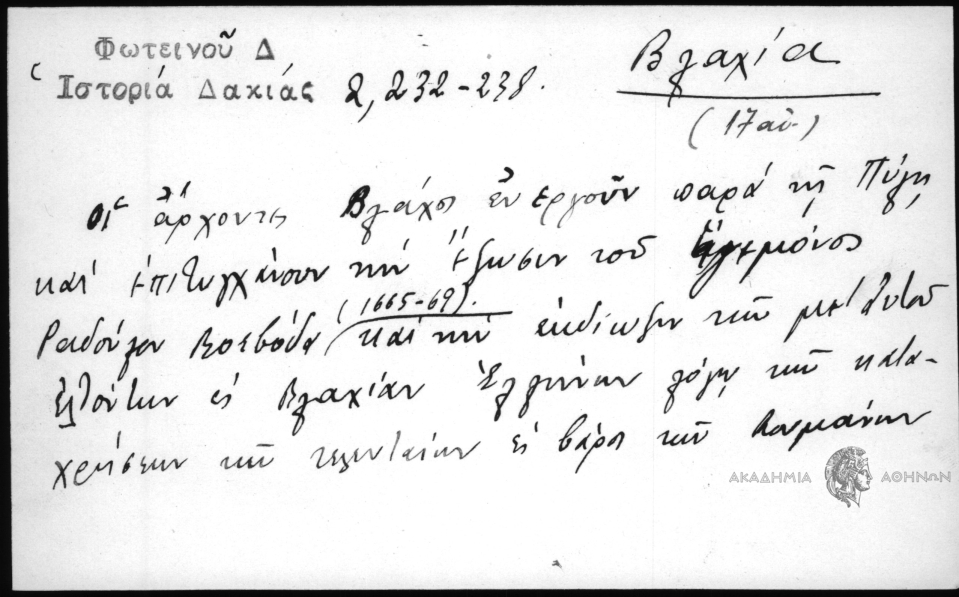 Φωτεινοῦ Δ
Ἱστορία Δακιάς 2, 232-238.
Βλαχία
(17 αἰ.)
Οἱ ἄρχοντες Βλάχοι ἐνεργοῦν παρά τῇ Πύλῃ
καί ἐπιτυγχάνουν τήν ἔξωσιν τοῦ ἡγεμόνος
Ραδούλου Βοεβόδα (1665-69). καί τήν ἐκδίωξιν τῶν μετ' αὐτοῦ
ἐλθόντων εἰς Βλαχίαν Ἑλλήνων λόγῳ τῶν κατα-
χρήσεων τῶν τελευταίων εἰς βάρος τῶν Ρουμάνων
ΑΚΑΔΗΜΙΑ ΑΘΗΝΩΝ